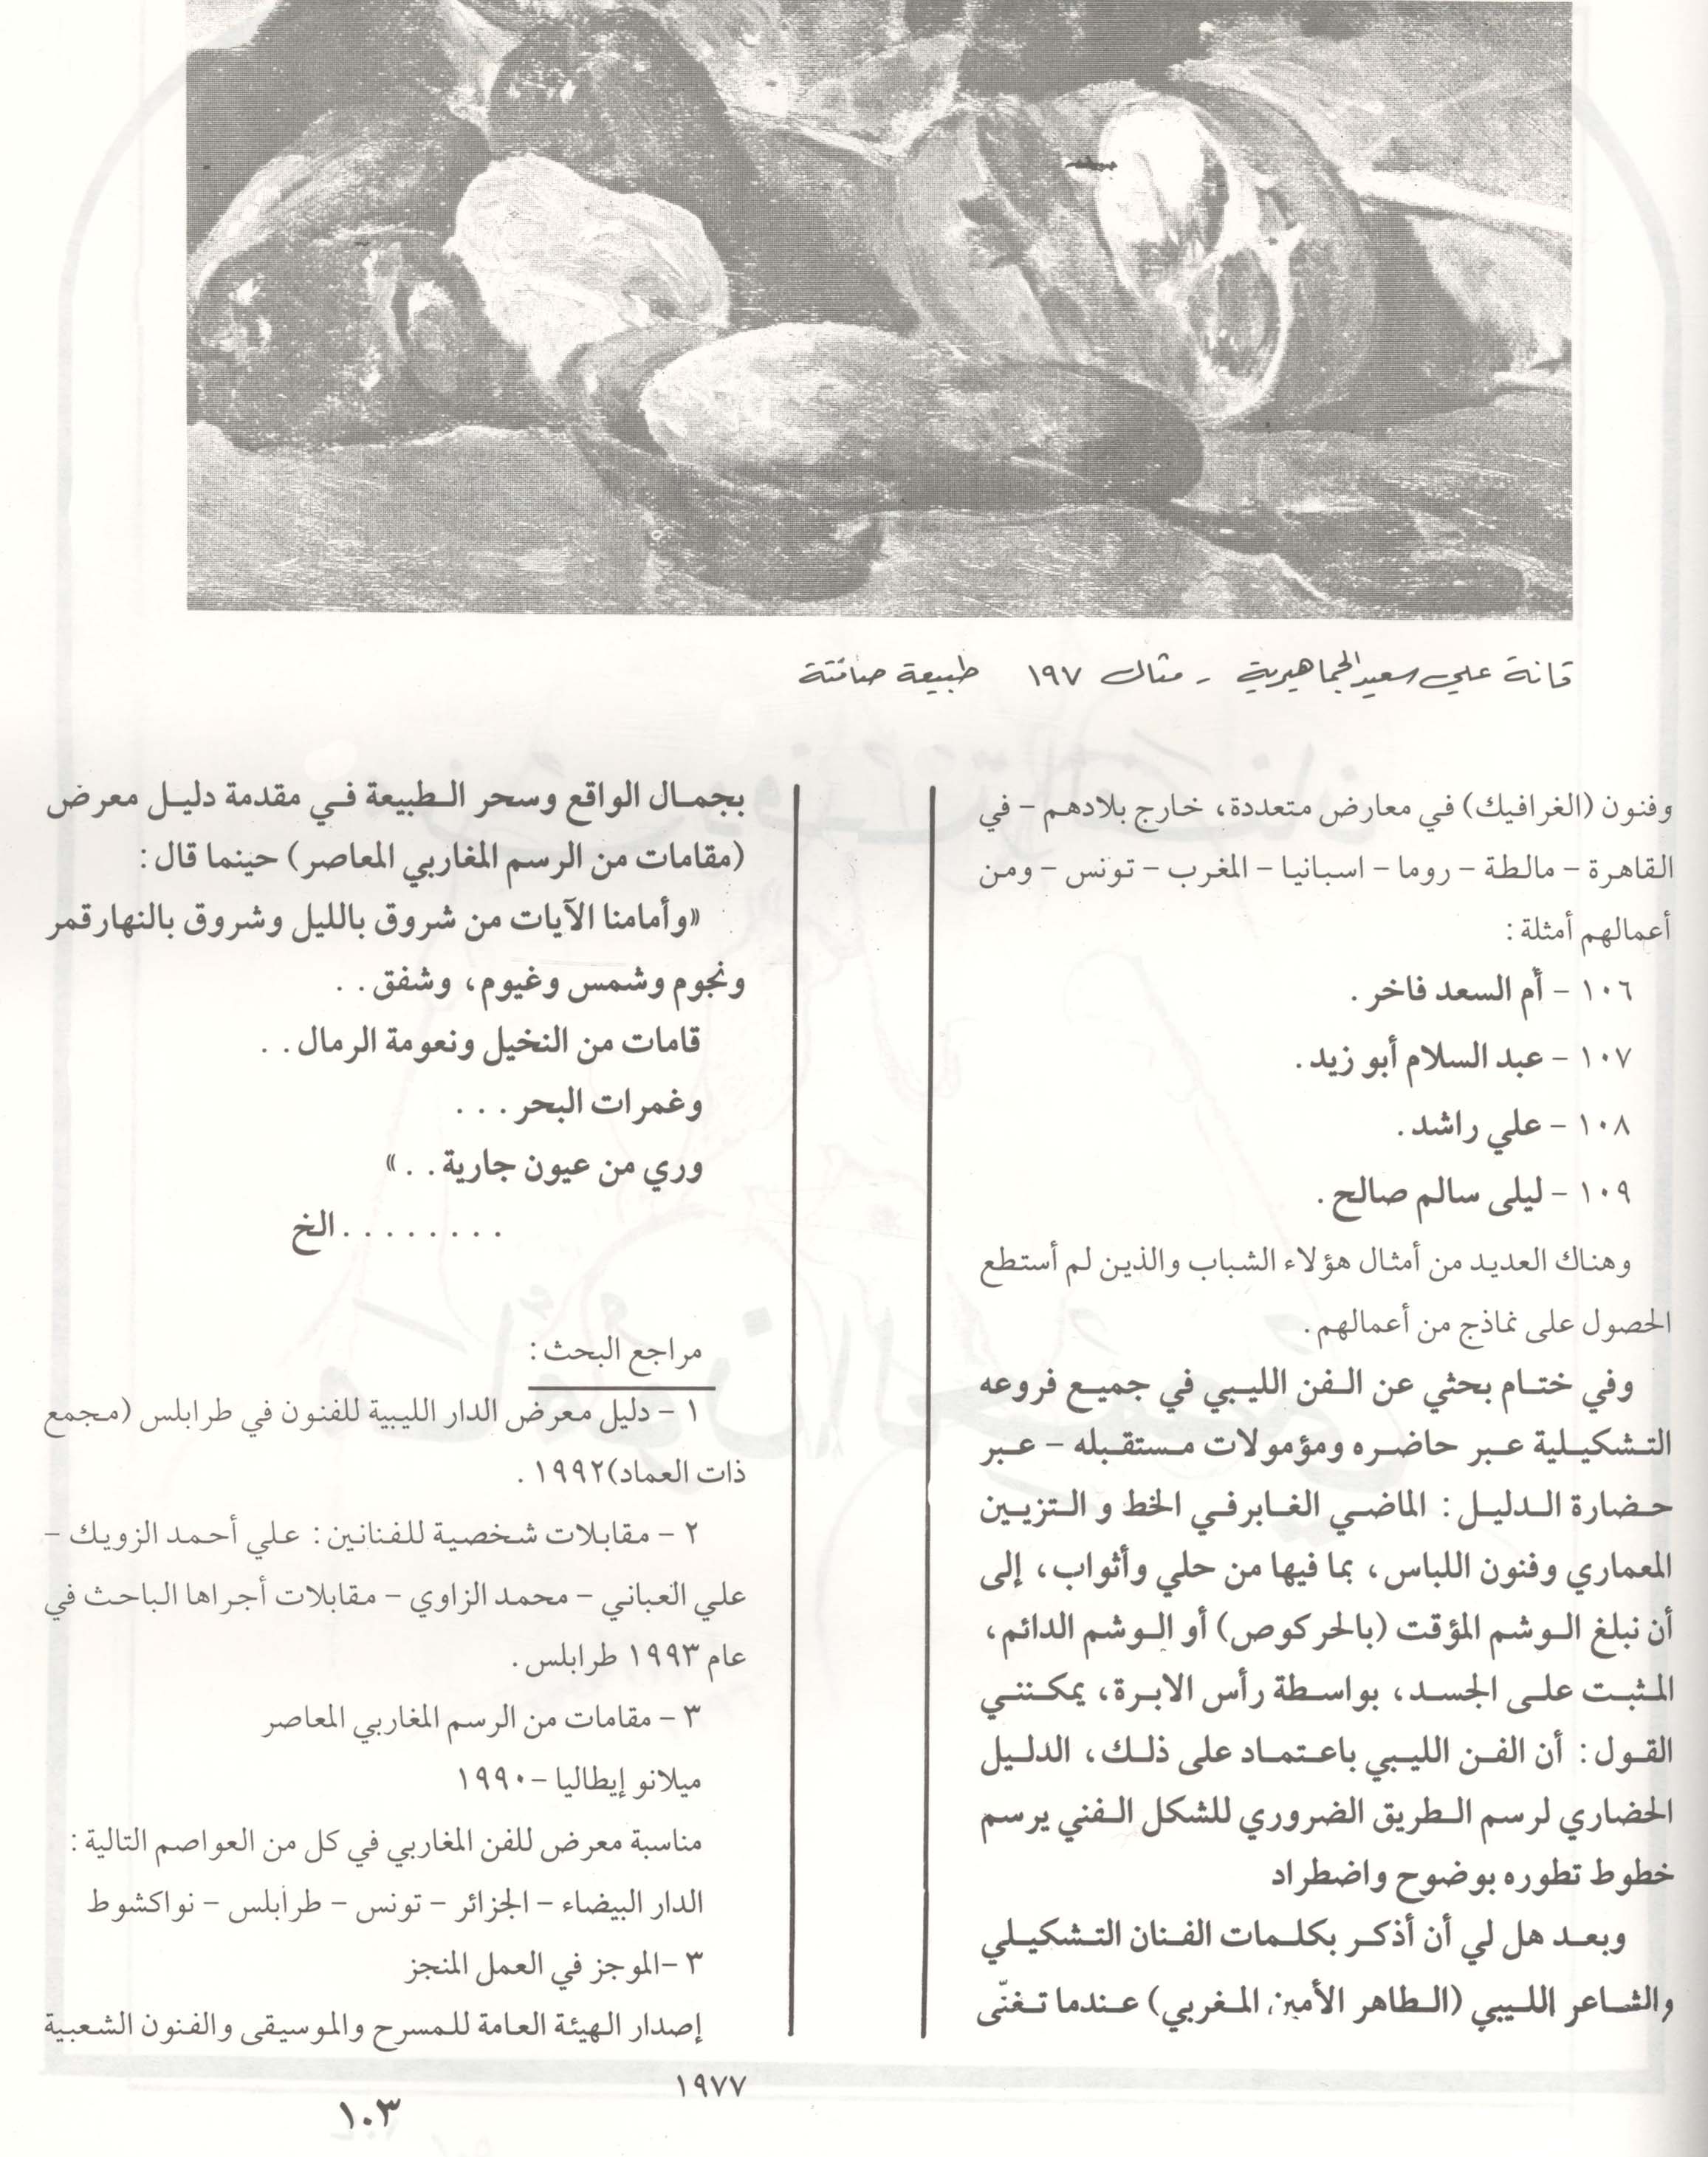 قانة علي سعيد الجماهيرية - مثال ١٩٧ طبيعة صامتة
وفنون (الغرافيك) في معارض متعددة، خارج بلادهم - في
القاهرة - مالطة - روما - اسبانيا - المغرب - تونس - ومن
أعمالهم أمثلة :
١٠٦ - أم السعد فاخر .
١٠٧ - عبد السلام أبو زيد .
١٠٨ - علي راشد .
١٠٩ - ليلى سالم صالح .
وهناك العديد من أمثال هؤلاء الشباب والذين لم أستطع
الحصول على نماذج من أعمالهم .
وفي ختام بحثي عن الفن الليبي في جميع فروعه
التشكيلية عبر حاضره ومؤمولات مستقبله - عبر
حضارة الدليل : الماضي الغابرفي الخط و التزيين
المعماري وفنون اللباس ، بما فيها من حلي وأثواب ، إلى
أن نبلغ الوشم المؤقت (بالحركوص) أو الوشم الدائم ،
المثبت على الجسد ، بواسطة رأس الابرة ، يمكنني
القول : أن الفن الليبي باعتماد على ذلك ، الدليل
الحضاري لرسم الطريق الضروري للشكل الفني يرسم
خطوط تطوره بوضوح واضطراد
وبعد هل لي أن أذكر بكلمات الفنان التشكيلي
والشاعر الليبي (الطاهر الأمين المغربي) عندما تغنّى
بجمال الواقع وسحر الطبيعة في مقدمة دليل معرض
(مقامات من الرسم المغاربي المعاصر) حينما قال :
«وأمامنا الآيات من شروق بالليل وشروق بالنهارقمر
ونجوم وشمس وغيوم، وشفق . .
قامات من النخيل ونعومة الرمال . .
وغمرات البحر . . .
وري من عيون جارية . . »
. . . . . . . . الخ
مراجع البحث :
١ - دليل معرض الدار الليبية للفنون في طرابلس (مجمع
ذات العماد)١٩٩٢ .
٢ - مقابلات شخصية للفنانين : علي أحمد الزويك -
علي العباني - محمد الزاوي - مقابلات أجراها الباحث في
عام ١٩٩٣ طرابلس .
٣ - مقامات من الرسم المغاربي المعاصر
ميلانو إيطاليا - ١٩٩٠
مناسبة معرض للفن المغاربي في كل من العواصم التالية :
الدار البيضاء - الجزائر - تونس - طرابلس - نواكشوط
٣ -الموجز في العمل المنجز
إصدار الهيئة العامة للمسرح والموسيقى والفنون الشعبية
١٩٧٧
١٠٣